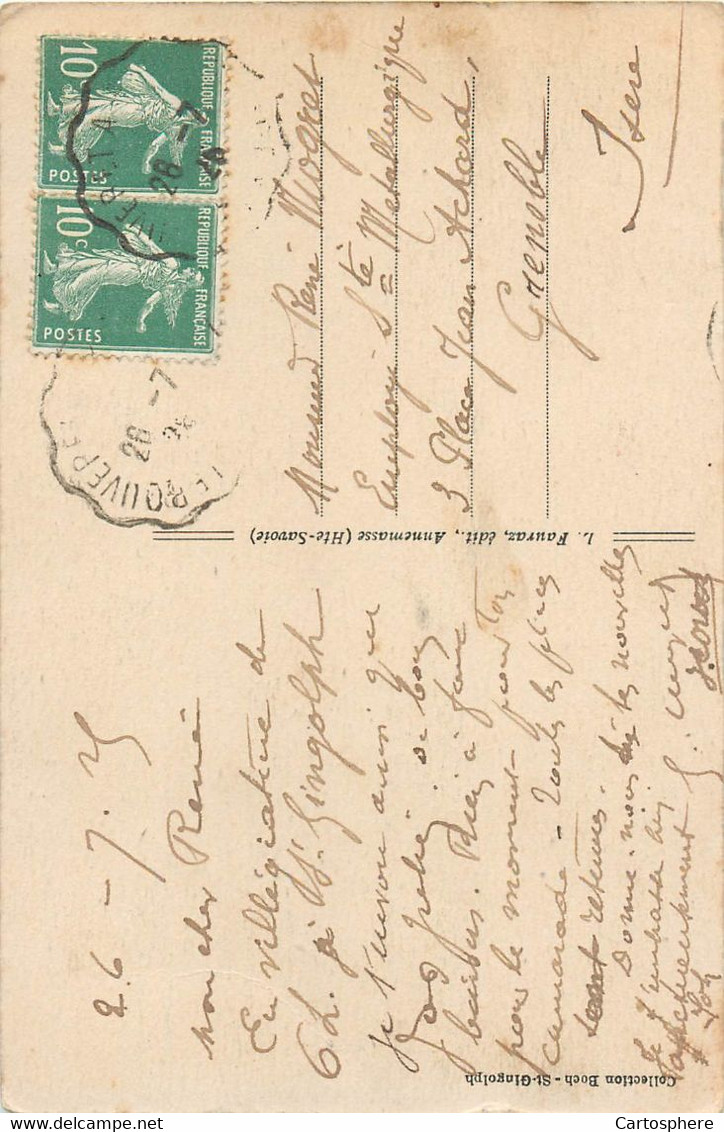 26 - 7. 25
mon cher René
En villégiature de
6 h. à St. Gingolph
je t'envoie ainsi que
bons
baisers. Rien à faire
pour le moment pour ton
camarade - toutes les places
sont retenues.
Donne-nous de tes nouvelles
Je t'embrasse bien
affectueusement
Monsieur René Mogret
Employé Sté Métallurgique
3 Place Jean Achard,
Grenoble
Isère
L. Fauraz, édit., Annemasse (Hte-Savoie)
Collection Boch - St-Gingolph
REPUBLIQUE FRANÇAISE
10c
POSTES
REPUBLIQUE FRANÇAISE
10c
POSTES
26 -7
26 -7
Cartosphere